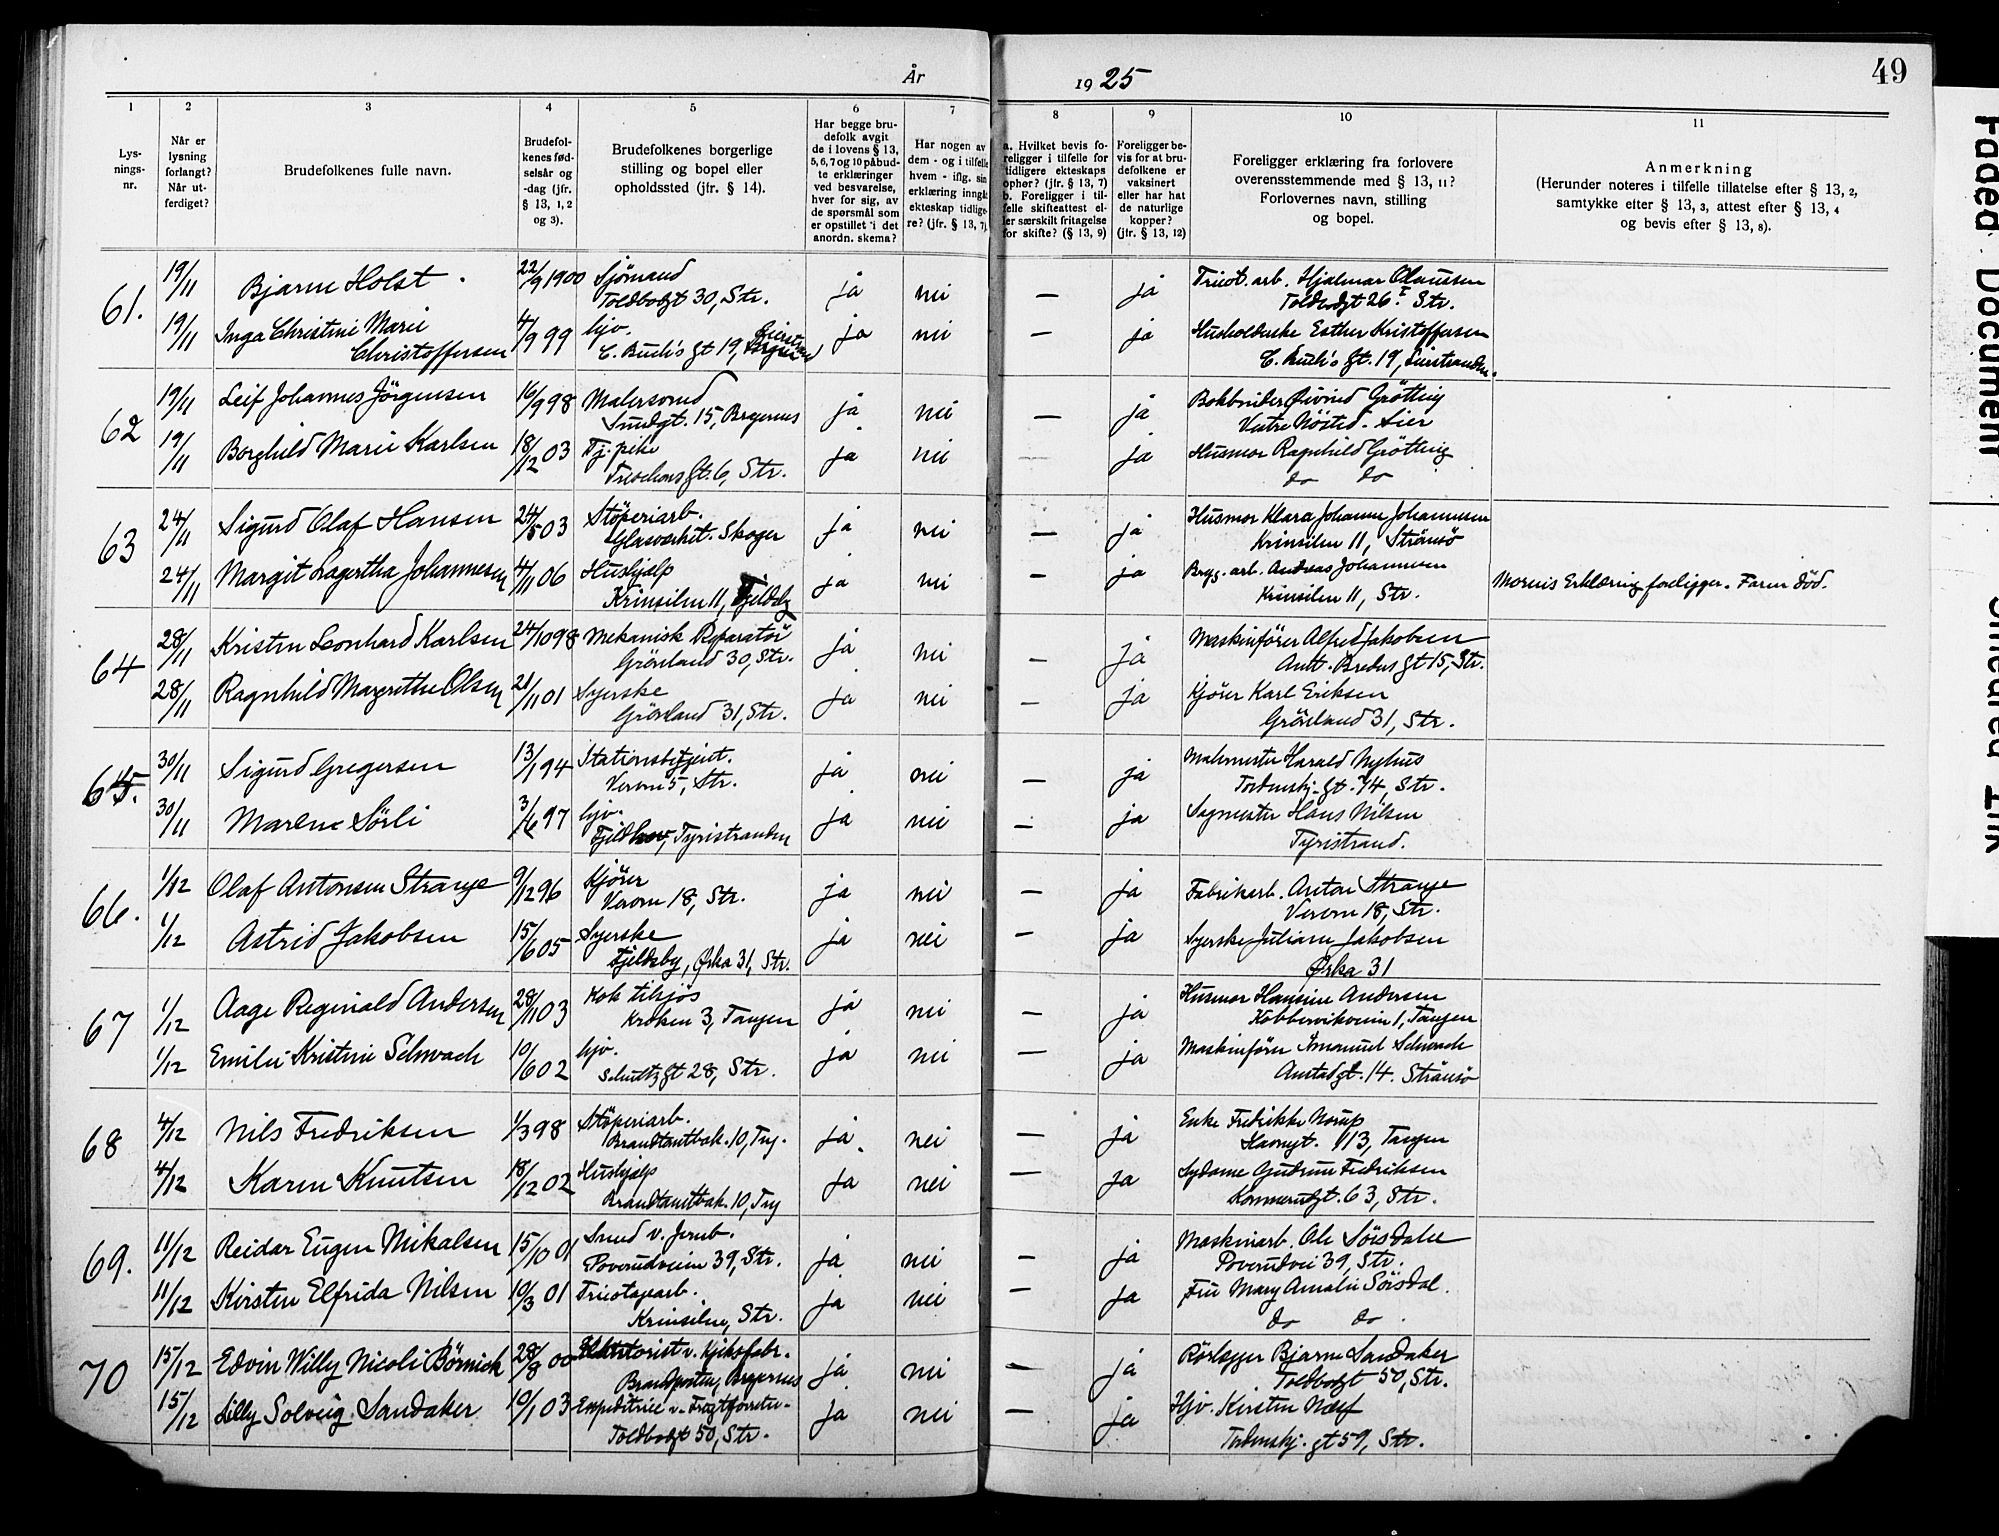 År 1925
49
1 2 3 4 5 6 7 8 9 10 11
Lys-
nings-
nr.
Når er
lysning
forlangt?
Når ut-
ferdiget?
Brudefolkenes fulle navn.
Brudefol-
kenes fød-
selsår og
-dag (jfr.
§ 13, 1, 2
og 3).
Brudefolkenes borgerlige
stilling og bopel eller
opholdssted (jfr. § 14).
Har begge bru-
defolk avgit
de i lovens § 13,
5, 6, 7 og 10 påbud-
te erklæringer
ved besvarelse,
hver for sig, av
de spørsmål som
er opstillet i det
anordn. skema?
Har nogen av
dem - og i tilfelle
hvem - iflg. sin
erklæring inngå
ekteskap tidlige-
re? (jfr. § 13, 7)
a. Hvilket bevis fo-
religger i tilfelle for
tidligere ekteskaps
ophør? (jfr. § 13, 7)
b. Foreligger i til-
felle skifteattest el-
ler særskilt fritagelse
for skifte? (§ 13, 9)
Foreligger be-
vis for at bru-
defolkene er
vaksinert
eller har hat
de naturlige
kopper?
(jfr. § 13, 12)
Foreligger erklæring fra forlovere
overensstemmende med § 13, 11?
Forlovernes navn, stilling
og bopel.
Anmerkning
(Herunder noteres i tilfelle tillatelse efter § 13, 2,
samtykke efter § 13, 3, attest efter § 13, 4
og bevis efter § 13, 8).
61. 19/11 Bjarne Holst 22/9 1900 Sjömand ja nei — ja Tricot. arb. Hjalmar Olaussen
Toldbodgt 30, Str. Toldbodgt 26 I Str.
19/11 Inga Christine Marie 4/9 99 hjv. ja nei — ja Husholderske Esther Kristoffersen
Christoffersen C. Buch's gt 19, C. Buch's gt. 19, Lierstranden.
62 19/11 Leif Johannes Jörgensen 16/9 98 Malersvend ja nei — ja Bokbinder Øivind Grötting
Smedgt. 15, Bragernes Vestre Nösted. Lier
19/11 Borghild Marie Karlsen 18/12 03 Tj. pike ja nei — ja Husmor Ragnhild Grötting
gt. 6, Str. do do
63 24/11 Sigurd Olaf Hansen 24/5 03 Støperiarb. ja nei — ja Husmor Klara Johanne Johannesen
Glasverket. Skoger Krinsilen 11, Strömsö
24/11 Margit Lagertha Johannesen 4/11 06 Hushjælp ja nei — ja Bryg. arb. Andreas Johannesen Morens Erklæring foreligger. Faren död.
Krinsilen 11, Fjeldsby Krinsilen 11, Str.
64 28/11 Kristen Leonhard Karlsen 24/10 98 Mekanisk Reparatör ja nei — ja Maskinförer Alfred Jakobsen
Grönland 30, Str. Anth. Bredes gt 15, Str.
28/11 Ragnhild Margrethe Olsen 21/11 01 Syerske ja nei — ja Kjörer Karl Eriksen
Grönland 31, Str. Grönland 31, Str.
65. 30/11 Sigurd Gregersen 13/1 94 Stationsbetjent. ja nei — ja Malermester Harald Nyhus
Veven 5, Str. Tordenskj. gt. 74, Str.
30/11 Maren Sörli 3/6 97 hjv. ja nei — ja Sagmester Hans Nilsen
Tyristranden Tyristrand.
66. 1/12 Olaf Antonsen Strange 9/12 96 Kjörer ja nei — ja Fabrikarb. Anton Strange
Veven 18, Str. Veven 18, Str.
1/12 Astrid Jakobsen 15/6 05 Syerske ja nei — ja Syerske Juliane Jakobsen
Fjeldsby, Ørka 31, Str. Ørka 31
67 1/12 Aage Reginald Andersen 28/11 03 Kok tilsjös ja nei — ja Husmor Hansine Andersen
Kroken 3, Tangen Kobbervikveien 1, Tangen
1/12 Emilie Kristine Schwach 10/6 02 hjv. ja nei — ja Maskinförer Imanuel Schwach
Schultz gt 28, Str. gt. 14. Strömsö
68 4/12 Nils Fredriksen 1/3 98 Stöperiarb. ja. nei — ja Enke Fredrikke Norup
Brandtenbak. 10, Tng. Havnegt. 113, Tangen
4/12 Karen Knutsen 18/12 02 Hushjælp ja nei — ja Sydame Gudrun Fredriksen
Brandtenbak. 10, Tng Konnerudgt. 63, Str.
69. 11/12 Reidar Eugen Mikalsen 15/10 01 Smed v. Jernb. ja nei — ja Maskinarb. Ole Sörsdahl
Poverudveien 39, Str. Poverudvei 39, Str.
11/12 Kirsten Elfrida Nilsen 10/3 01 Tricotagearb. ja nei — ja Fru Mary Amalie Sörsdal.
Krinsilen, Str. do do.
70 15/12 Edvin Willy Nicoli Börnick 28/8 00 v. Kjeksfabr. ja nei — ja Rörlegger Bjarne Sandaker
Brandposten, Bragernes Toldbodgt 50, Str.
15/12 Lilly Solveig Sandaker 10/1 03 Expeditrice v. Frugtforretn. ja nei — ja Hjv. Kirsten Næss
Toldbodgt 50, Str. Tordenskj. gt 59, Str.
Faded Document
Smeared Ink